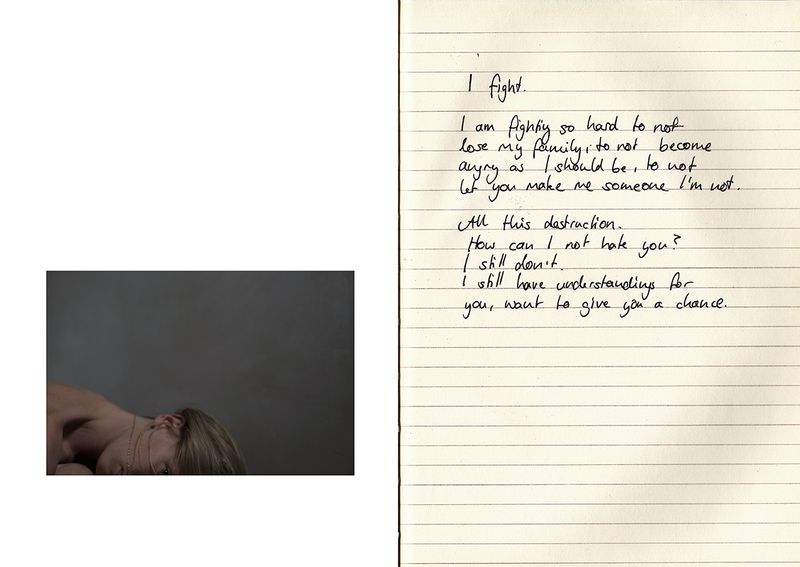 I fight.
I am fighting so hard to not
lose my family, to not become
angry as I should be, to not
let you make me someone I'm not.
All this destruction.
How can I not hate you?
I still don't.
I still have understandings for
you, want to give you a chance.